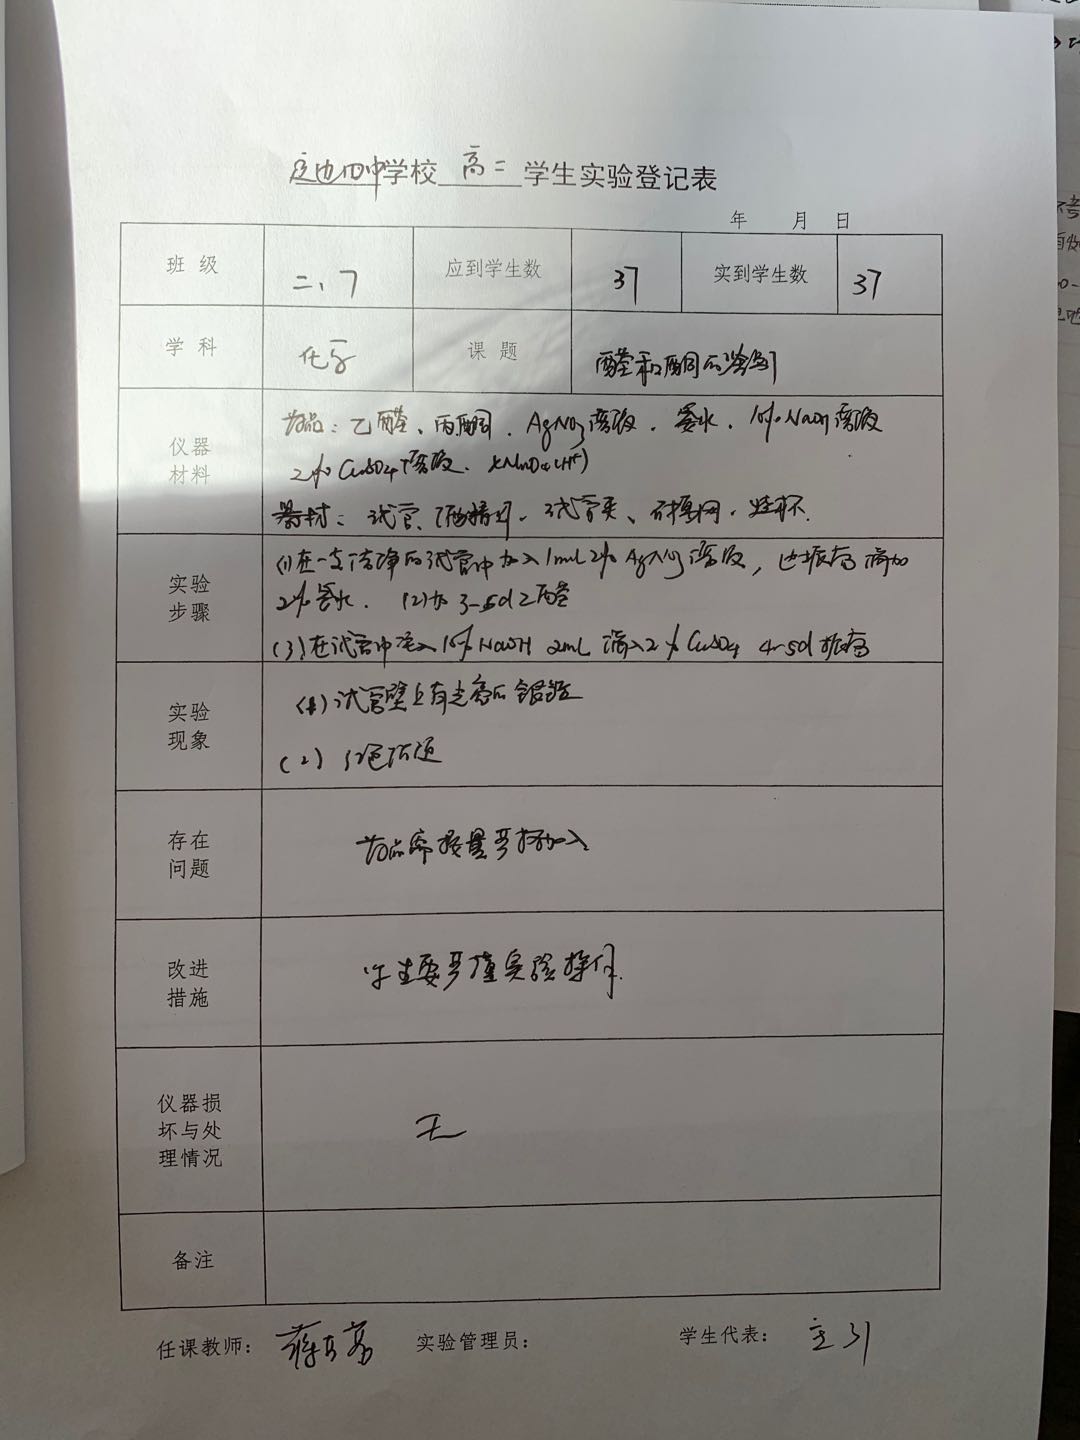 定边四中学校 高二 学生实验登记表
年 月 日
班 级 二、7 应到学生数 37 实到学生数 37
学 科 化学 课 题 醛和酮的鉴别
仪器
材料
药品：乙醛、丙酮、AgNO3溶液、氨水、10% NaOH溶液
2% CuSO4溶液、KMnO4(H+)
器材：试管、酒精灯、试管夹、石棉网、烧杯.
实验
步骤
(1)在一支洁净的试管中加入1mL 2% AgNO3溶液，边振荡滴加
2%氨水. (2)加3-5d乙醛
(3)在试管中注入10% NaOH 2mL 滴入2% CuSO4 4-5d振荡
实验
现象
(1)试管壁上有光亮的银镜
(2) 红色沉淀
存在
问题
药品需按量严格加入
改进
措施
学生要严谨实验操作.
仪器损
坏与处
理情况
无
备注
任课教师： 实验管理员： 学生代表：